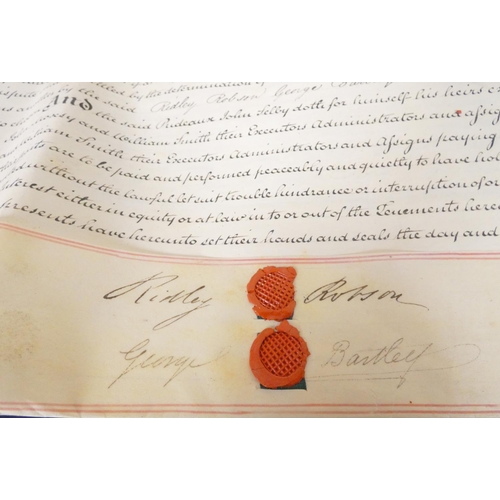 by the determination of
by the said Ridley Robson George
And the said Rideaux John Selby doth for himself his heirs
and William Smith their Executors Administrators and assigns
William Smith their Executors Administrators and Assigns paying
are to be paid and performed peaceably and quietly to have
without the lawful let suit trouble hindrance or interruption of
either in equity or at law in to or out of the Tenements
presents have hereunto set their hands and seals the day and
Ridley Robson
George Bartley